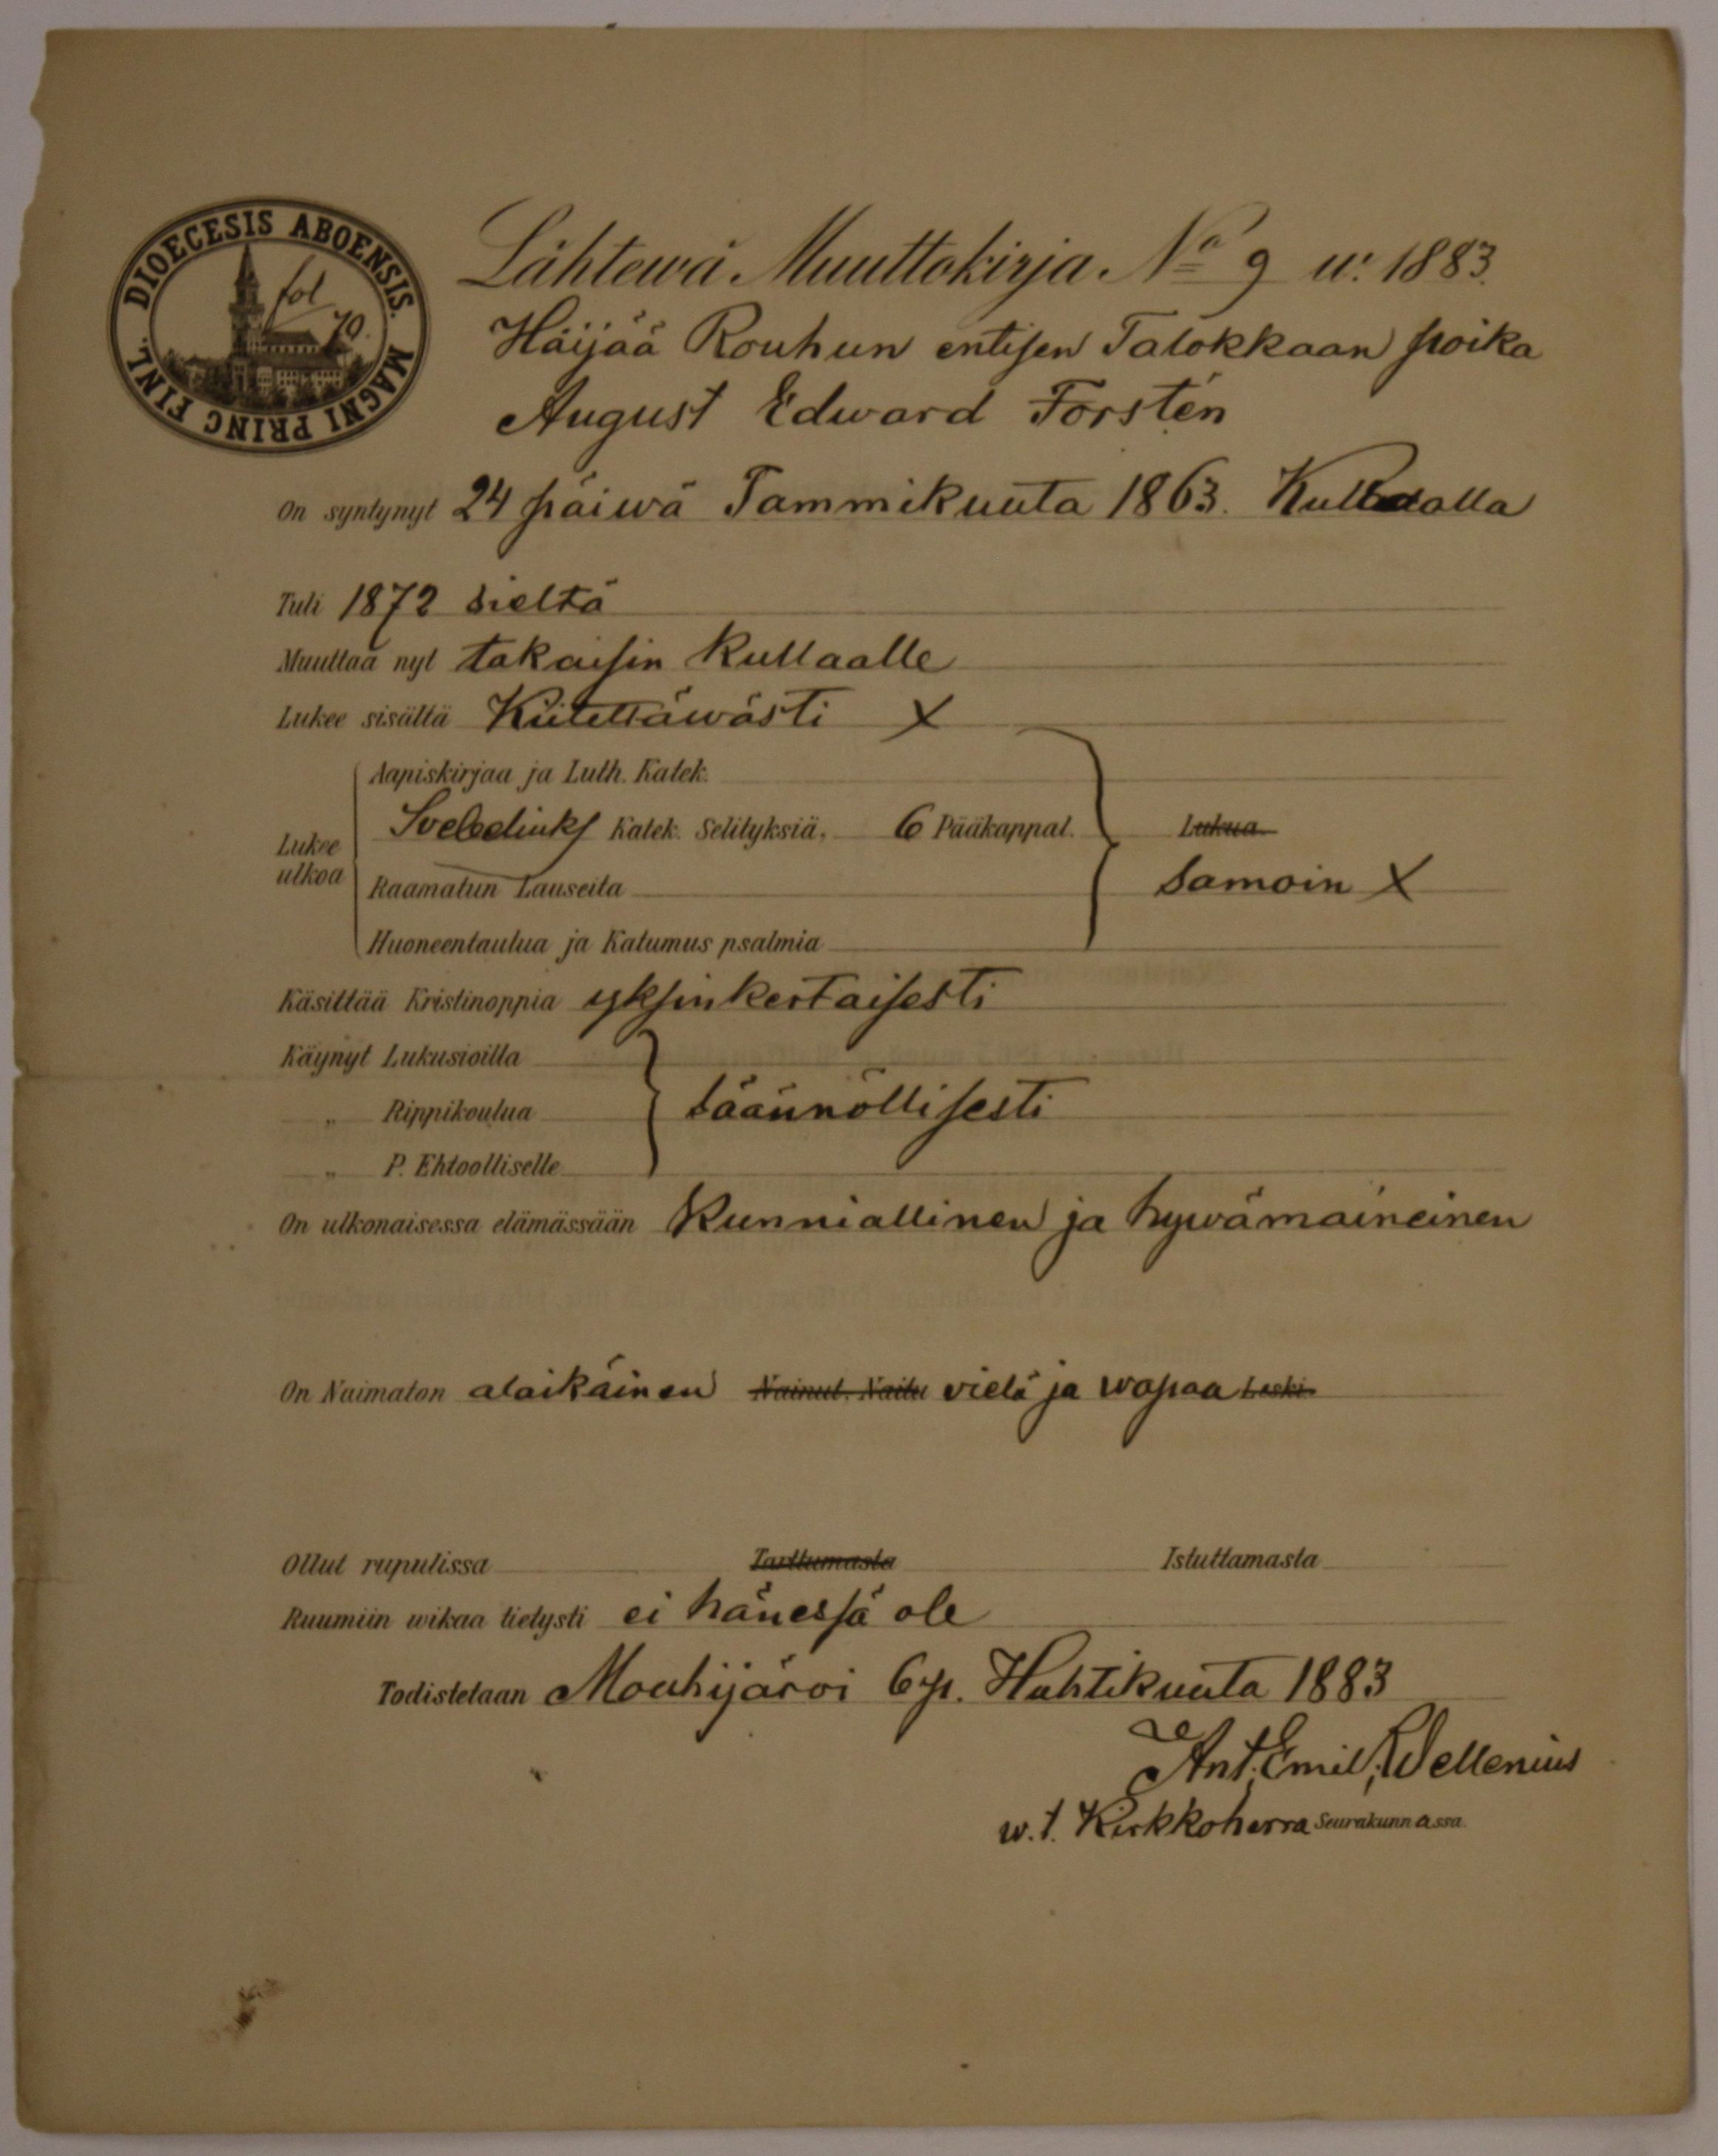 DIOECESIS ABOENSIS. MAGNI PRINC FINL.
fol 70.
Lähtewä Muuttokirja No 9 w: 1883.
Häijää Rouhun entisen Talokkaan poika
August Edward Forstén
On syntynyt 24 päiwä Tammikuuta 1863. Kullaalla
Tuli 1872 sieltä
Muuttaa nyt takaisin Kullaalle
Lukee sisältä Kiitettäwästi X
Aapiskirjaa ja Luth. Katek.
Svebeliuks Katek. Selityksiä, 6 Pääkappal. Lukua.
Lukee ulkoa
Raamatun Lauseita samoin X
Huoneentaulua ja Katumus psalmia
Käsittää Kristinoppia yksinkertaisesti
Käynyt Lukusioilla
„ Rippikoulua säännöllisesti
„ P. Ehtoolliselle
On ulkonaisessa elämässään Kunniallinen ja hywämaineinen
On Naimaton alaikäinen Nainut, Naitu vielä ja wapaa Leski.
Ollut rupulissa Tarttumasta Istuttamasta
Ruumiin wikaa tietysti ei hänessä ole
Todistetaan Mouhijärvi 6 p. Huhtikuuta 1883
Ant. Emil. Wellenius
w. t. Kirkkoherra Seurakunnassa.